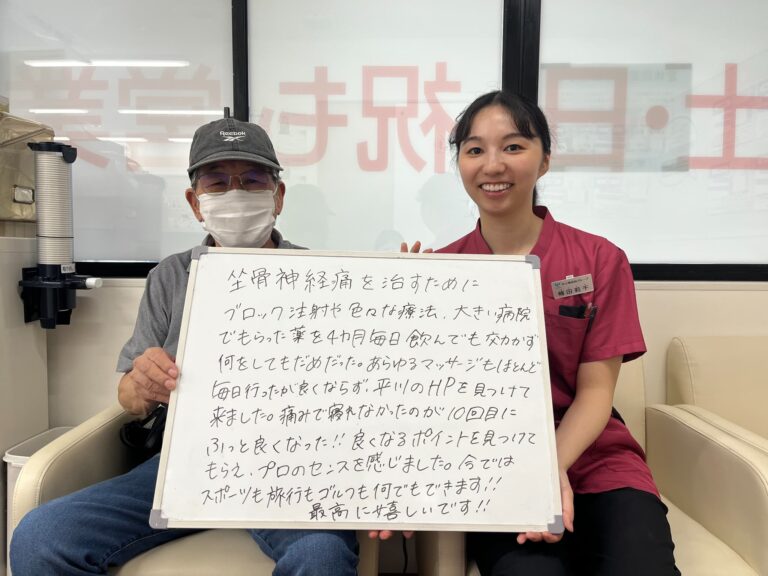 土・日・祝も営業
Reebok
坐骨神経痛を治すために
ブロック注射や色々な療法、大きい病院
でもらった薬を4カ月毎日飲んでも効かず
何をしてもだめだった。あらゆるマッサージもほとんど
毎日行ったが良くならず、平川のHPを見つけて
来ました。痛みで寝れなかったのが10回目に
ふっと良くなった!! 良くなるポイントを見つけて
もらえ、プロのセンスを感じました。今では
スポーツも旅行もゴルフも何でもできます!!
最高に嬉しいです!!